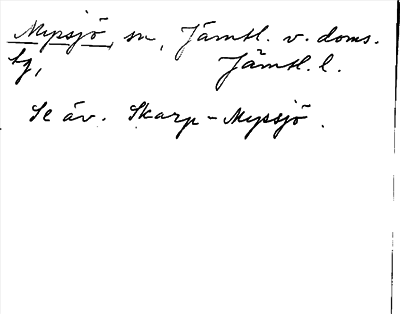 Mypsjö, sn, Jämtl. v. doms.
tg, Jämtl. l.
Se äv. Skarp-Mypsjö.